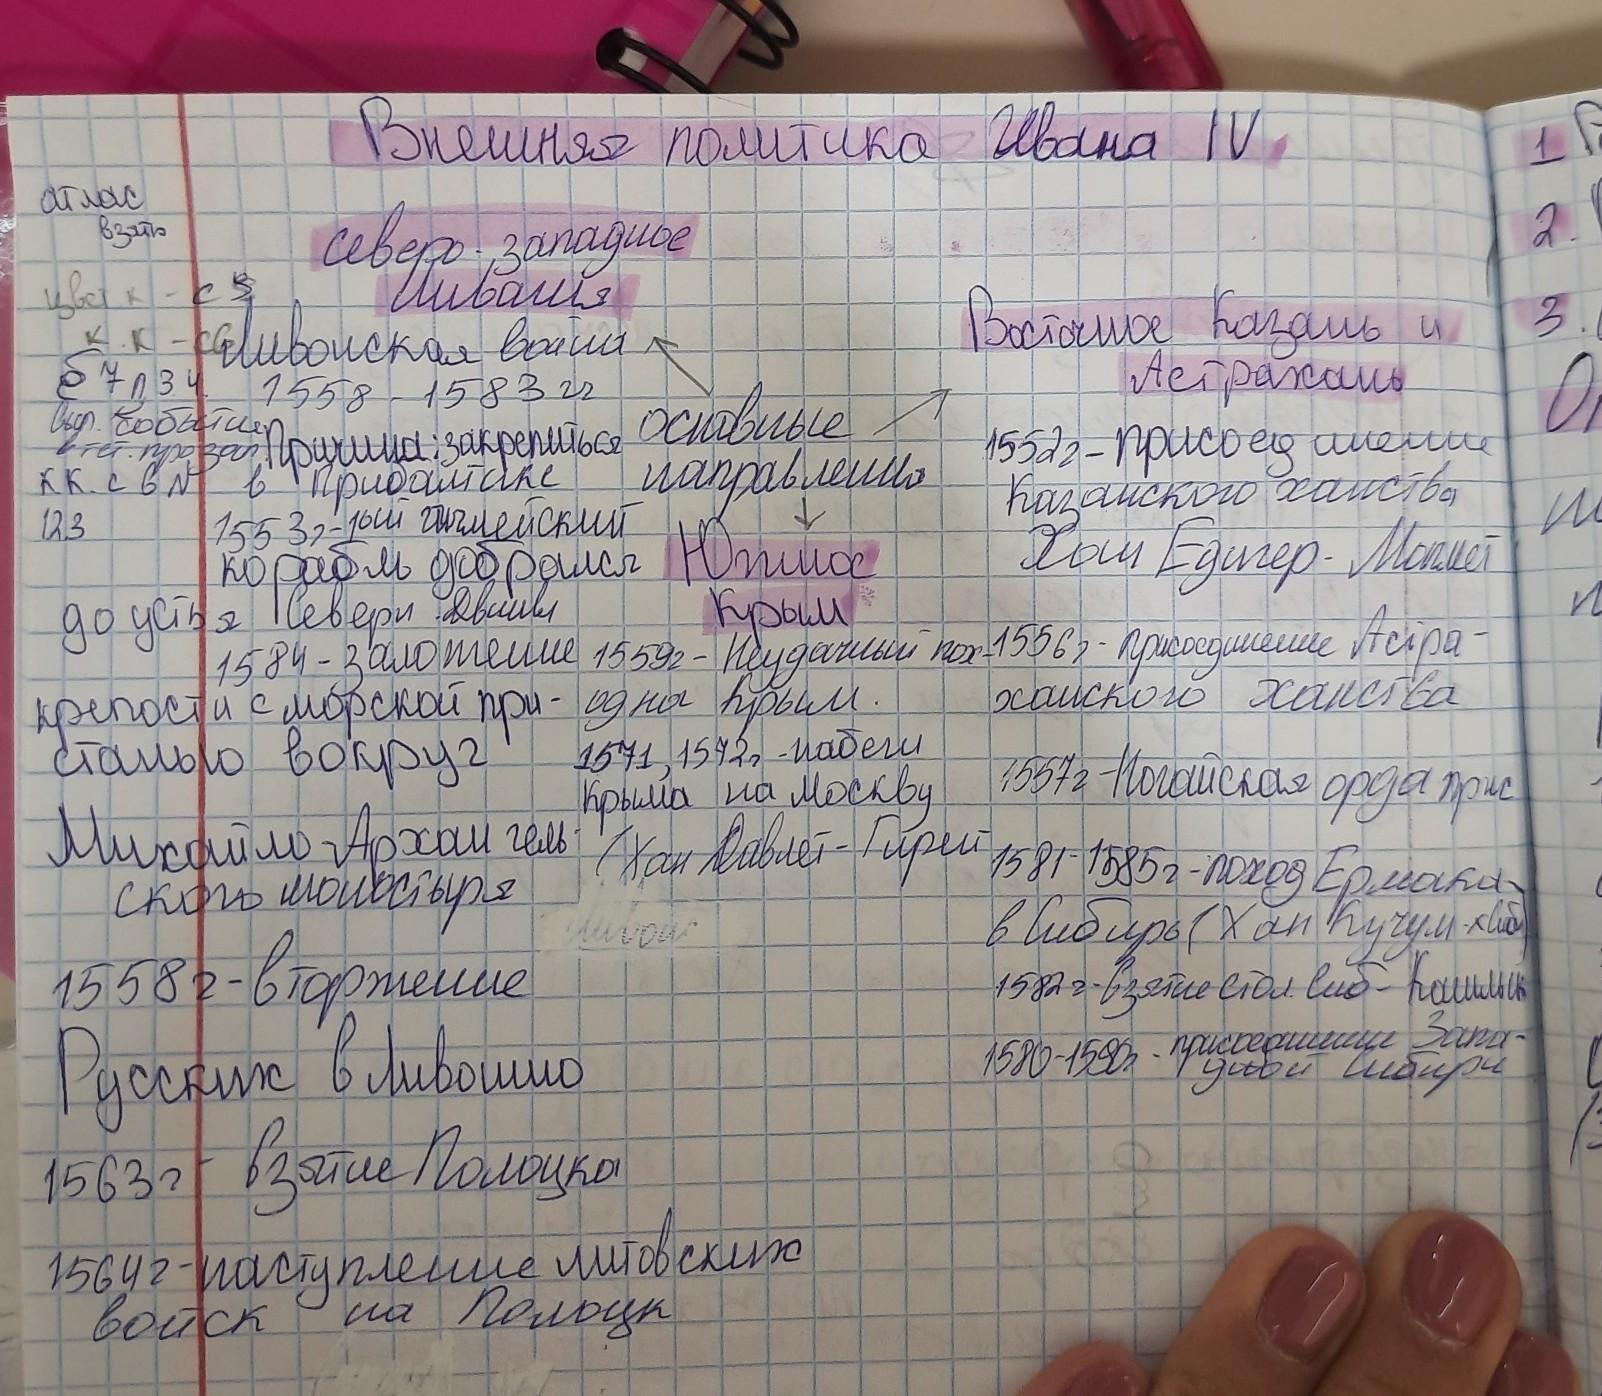 Внешняя политика Ивана IV
атлас
взять
северо-западное
Ливония
Ливонская война
1558-1583 гг
Причина: закрепиться
в Прибалтике
1553г-1ый английский
корабль добрался
до устья Северн. Двины
1584-заложение
крепости с морской при-
станью вокруг
Михайло-Архангель
ского монастыря
1558г-вторжение
Русских в Ливонию
1563г- взятие Полоцка
1564г-наступление литовских
войск на Полоцк
цвет к - с 5
к.к - с6
б 7 п 3 ч
выр. события
к.к. с 6 №
123
основные
направления
Южное
Крым
1559г- Неудачный пох-
од на Крым.
1571, 1572г-набеги
Крыма на Москву
(Хан Давлет-Гирей
Ливон
Восточное Казань и
Астрахань
1552г-присоединение
Казанского ханства
Хан Едигер-Магмет
1556г-присоединение Астра-
ханского ханства
1557г-Ногайская орда прис
1581-1585г-поход Ермака
в Сибирь (Хан Кучум-
1582г-взятие стол. Сиб- Кашлык
1580-1590г-присоединение Запа-
дной Сибири
1
2.
3.